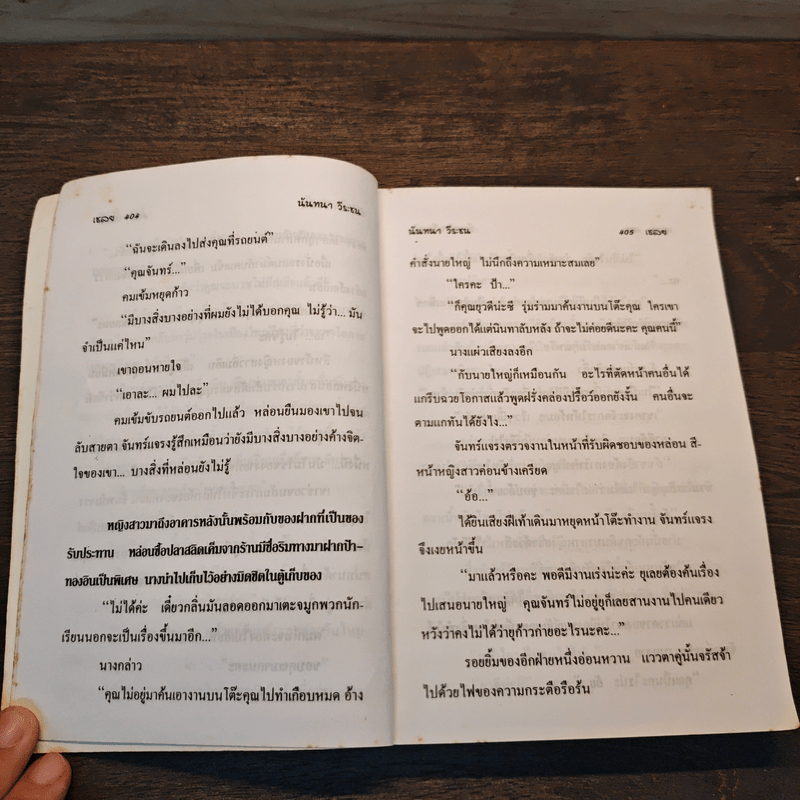 เชลย ๔๐๔ นันทนา วีระชน
“ฉันจะเดินลงไปส่งคุณที่รถยนต์”
“คุณจันทร์...”
คมเข้มหยุดก้าว
“มีบางสิ่งบางอย่างที่ผมยังไม่ได้บอกคุณ ไม่รู้ว่า... มัน
จำเป็นแค่ไหน”
เขาถอนหายใจ
“เอาละ... ผมไปละ”
คมเข้มขับรถยนต์ออกไปแล้ว หล่อนยืนมองเขาไปจน
ลับสายตา จันทร์แจรงรู้สึกเหมือนว่ายังมีบางสิ่งบางอย่างค้างจิต-
ใจของเขา... บางสิ่งที่หล่อนยังไม่รู้
หญิงสาวมาถึงอาคารหลังนั้นพร้อมกับของฝากที่เป็นของ
รับประทาน หล่อนซื้อปลาสลิดเค็มจากร้านมีชื่อริมทางมาฝากป้า-
ทองอินเป็นพิเศษ นางนำไปเก็บไว้อย่างมิดชิดในตู้เก็บของ
“ไม่ได้ค่ะ เดี๋ยวกลิ่นมันลอดออกมาเตะจมูกพวกนัก-
เรียนนอกจะเป็นเรื่องขึ้นมาอีก...”
นางกล่าว
“คุณไม่อยู่มาค้นเอางานบนโต๊ะคุณไปทำเกือบหมด อ้าง
นันทนา วีระชน ๔๐๕ เชลย
คำสั่งนายใหญ่ ไม่นึกถึงความเหมาะสมเลย”
“ใครคะ ป้า...”
“ก็คุณยุวดีน่ะซี รุ่มร่ามมาค้นงานบนโต๊ะคุณ ใครเขา
จะไปพูดออกได้แต่นินทาลับหลัง ถ้าจะไม่ค่อยดีนะคะ คุณคนนี้”
นางแผ่วเสียงลงอีก
“กับนายใหญ่ก็เหมือนกัน อะไรที่ตัดหน้าคนอื่นได้
แกรีบฉวยโอกาสแล้วพูดฝรั่งคล่องปรื๋อร์ออกยังงั้น คนอื่นจะ
ตามแกทันได้ยังไง...”
จันทร์แจรงตรวจงานในหน้าที่รับผิดชอบของหล่อน สี-
หน้าหญิงสาวค่อนข้างเครียด
“อ้อ...”
ได้ยินเสียงฝีเท้าเดินมาหยุดหน้าโต๊ะทำงาน จันทร์แจรง
จึงเงยหน้าขึ้น
“มาแล้วหรือคะ พอดีมีงานเร่งน่ะค่ะ ยุเลยต้องค้นเรื่อง
ไปเสนอนายใหญ่ คุณจันทร์ไม่อยู่ยุก็เลยสานงานไปคนเดียว
หวังว่าคงไม่ได้ว่ายุก้าวก่ายอะไรนะคะ...”
รอยยิ้มของอีกฝ่ายหนึ่งอ่อนหวาน แววตาคู่นั้นจรัสจ้า
ไปด้วยไฟของความกระตือรือร้น